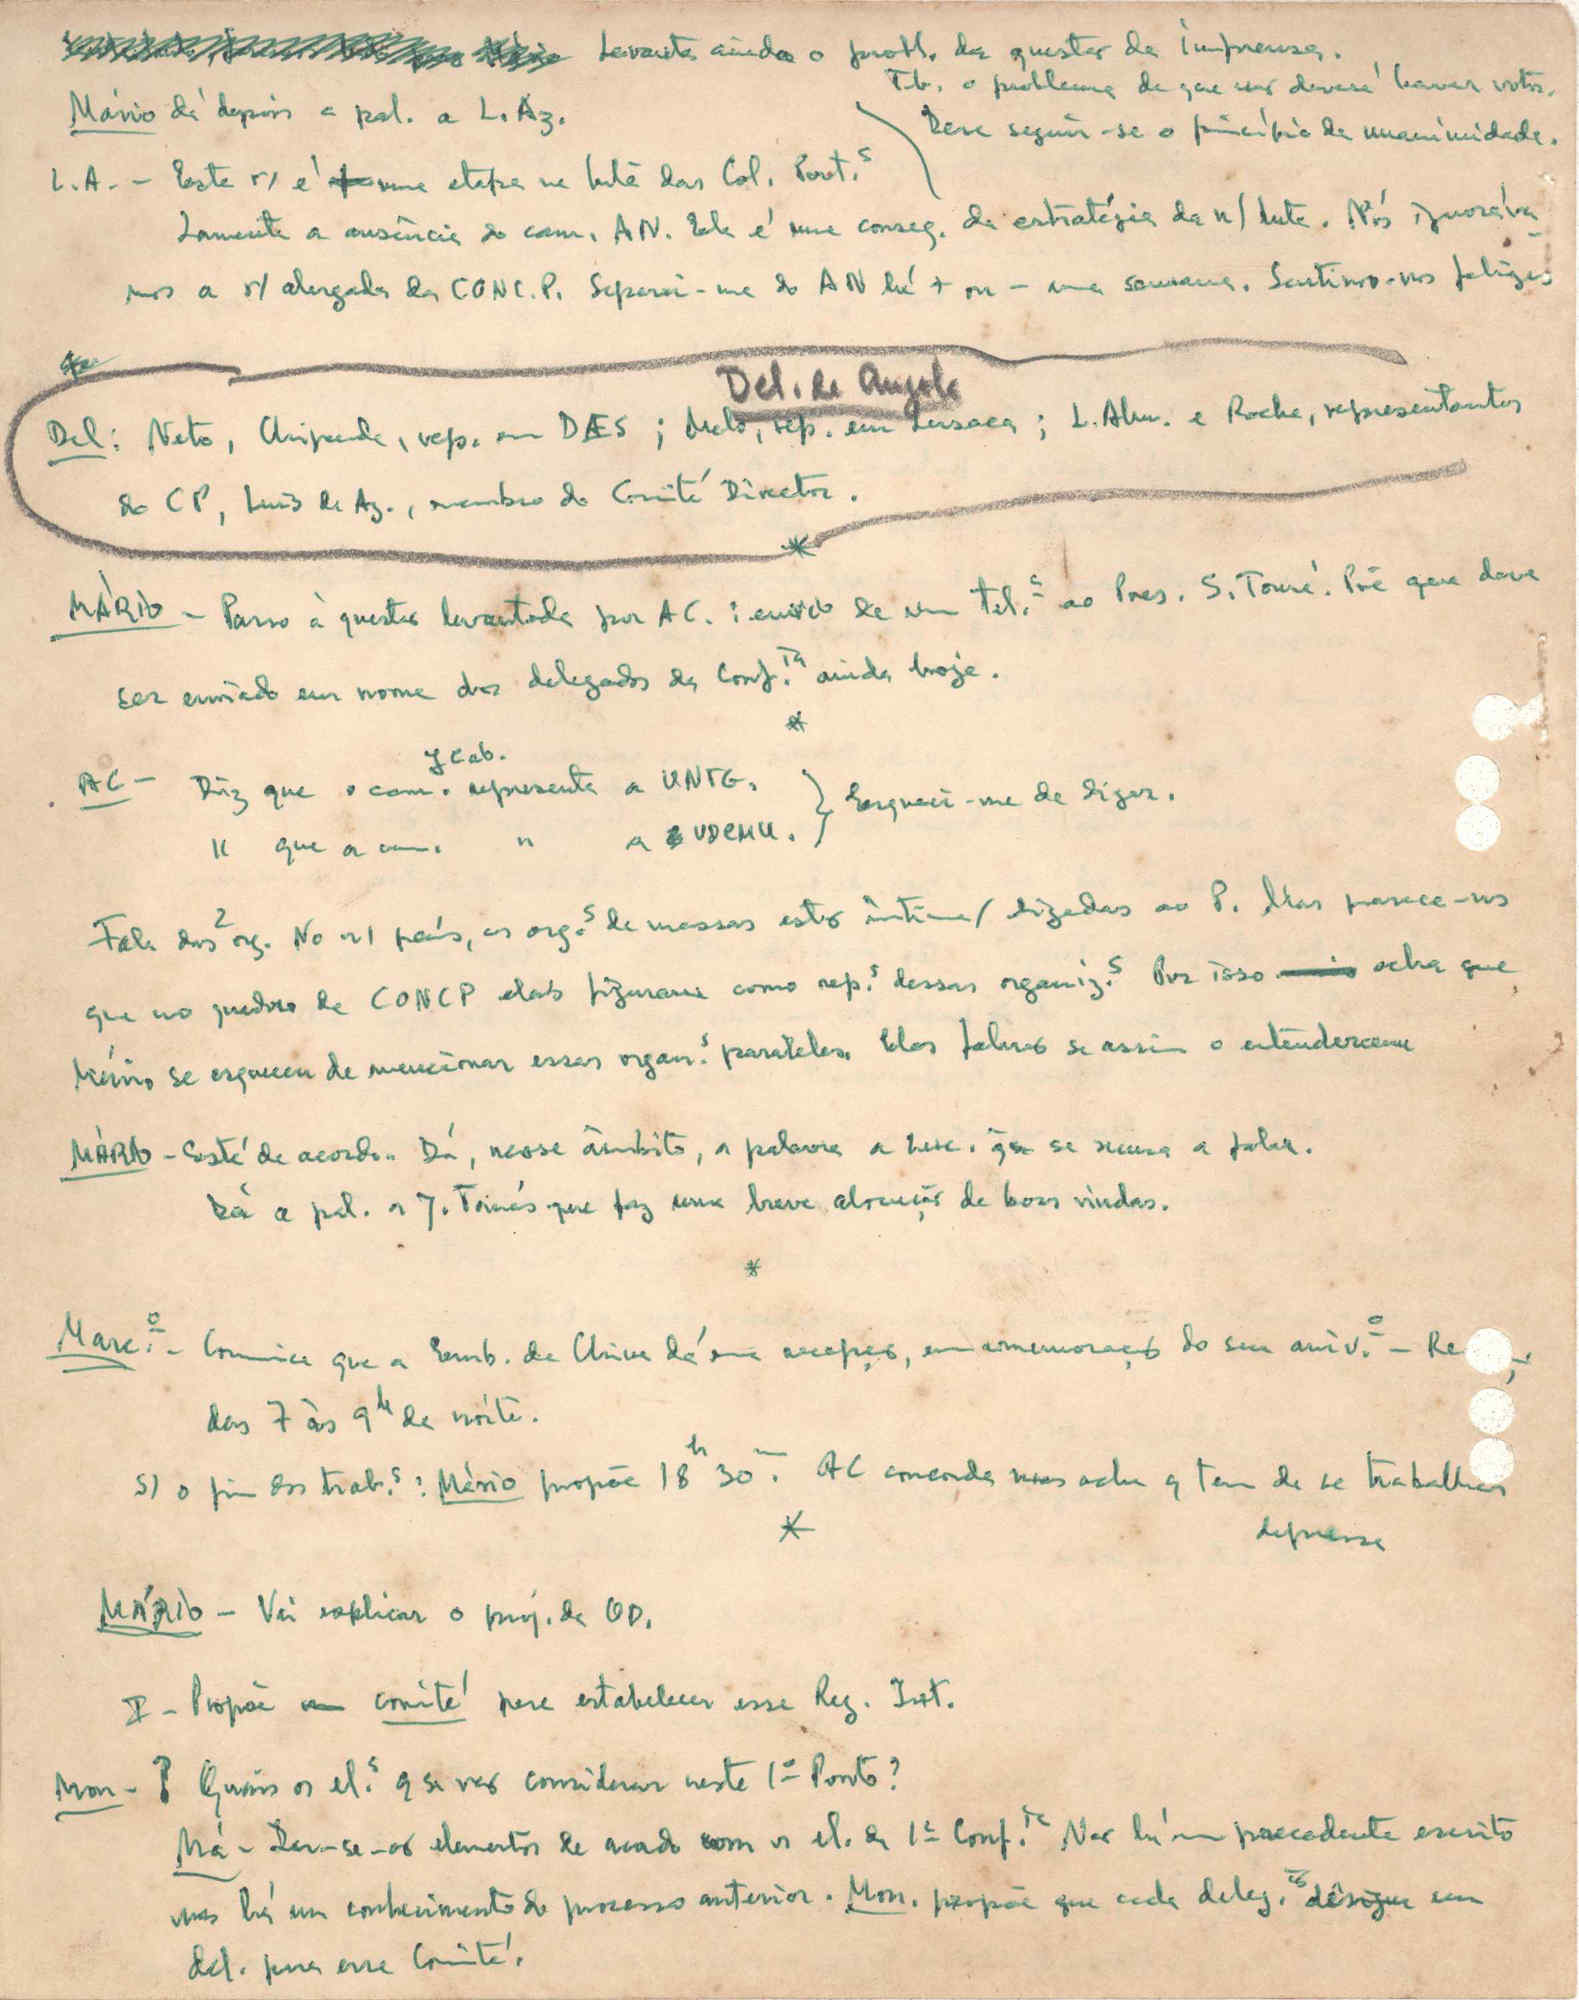 Levanta ainda o probl. da questão da imprensa.
Tb. o problema de que não deverá haver votos.
Deve seguir-se o princípio da unanimidade.
Mário dá depois a pal. a L. Az.
L.A. - Este r/ é uma etapa na luta das Col. Port.s
Lamenta a ausência do cam. AN. Ela é uma conseq. da estratégia da n/ luta. Nós ignoráva-
mos a r/ alargada da CONC.P. Separei-me do AN há + ou - uma semana. Sentimo-nos felizes
Del. de Angola
Del: Neto, Chipenda, rep. em DAES; Melo, rep. em Lusaca; L. Alm. e Rocha, representantes
do CP, Luís de Az., membro do Comité Director.
*
MÁRIO - Passo à questão levantada por AC.: envio de um tel. ao Pres. S. Touré. Põe que deve
ser enviado em nome dos delegados da Conf.ia ainda hoje.
*
AC - Diz que o cam. J Cab. representa a UNTG.
" que a cam. " a UDEMU. } Esqueci-me de dizer.
Fala das 2 org. No n/ país, as org.s de massas estão intima/ ligadas ao P. Mas parece-nos
que no quadro da CONCP elas figuram como rep.s dessas organiz.s Por isso acha que
Mário se esqueceu de mencionar essas organ.s paralelas. Elas falarão se assim o entenderem
MÁRIO - Está de acordo. Dá, nesse âmbito, a palavra a que se recusa a falar.
Dá a pal. a J. Tomás que faz uma breve alocução de boas vindas.
*
Marc.o - Comunica que a Emb. da China dá uma recepção, em comemoração do seu aniv.o - Re
das 7 às 9h da noite.
S/ o fim dos trab.s: Mário propõe 18h 30m. AC concorda mas acha q tem de se trabalhar
depressa
*
MÁRIO - Vai explicar o proj. da OD.
I - Propõe um comité para estabelecer esse Reg. Int.
Mon - ? Quais os el.s q se vão considerar neste 1º Ponto?
Má - Dar-se-ão elementos de acordo com os el. da 1ª Conf.ia Não há um precedente escrito
mas há um conhecimento do processo anterior. Mon. propõe que cada deleg. designe um
del. para esse Comité.